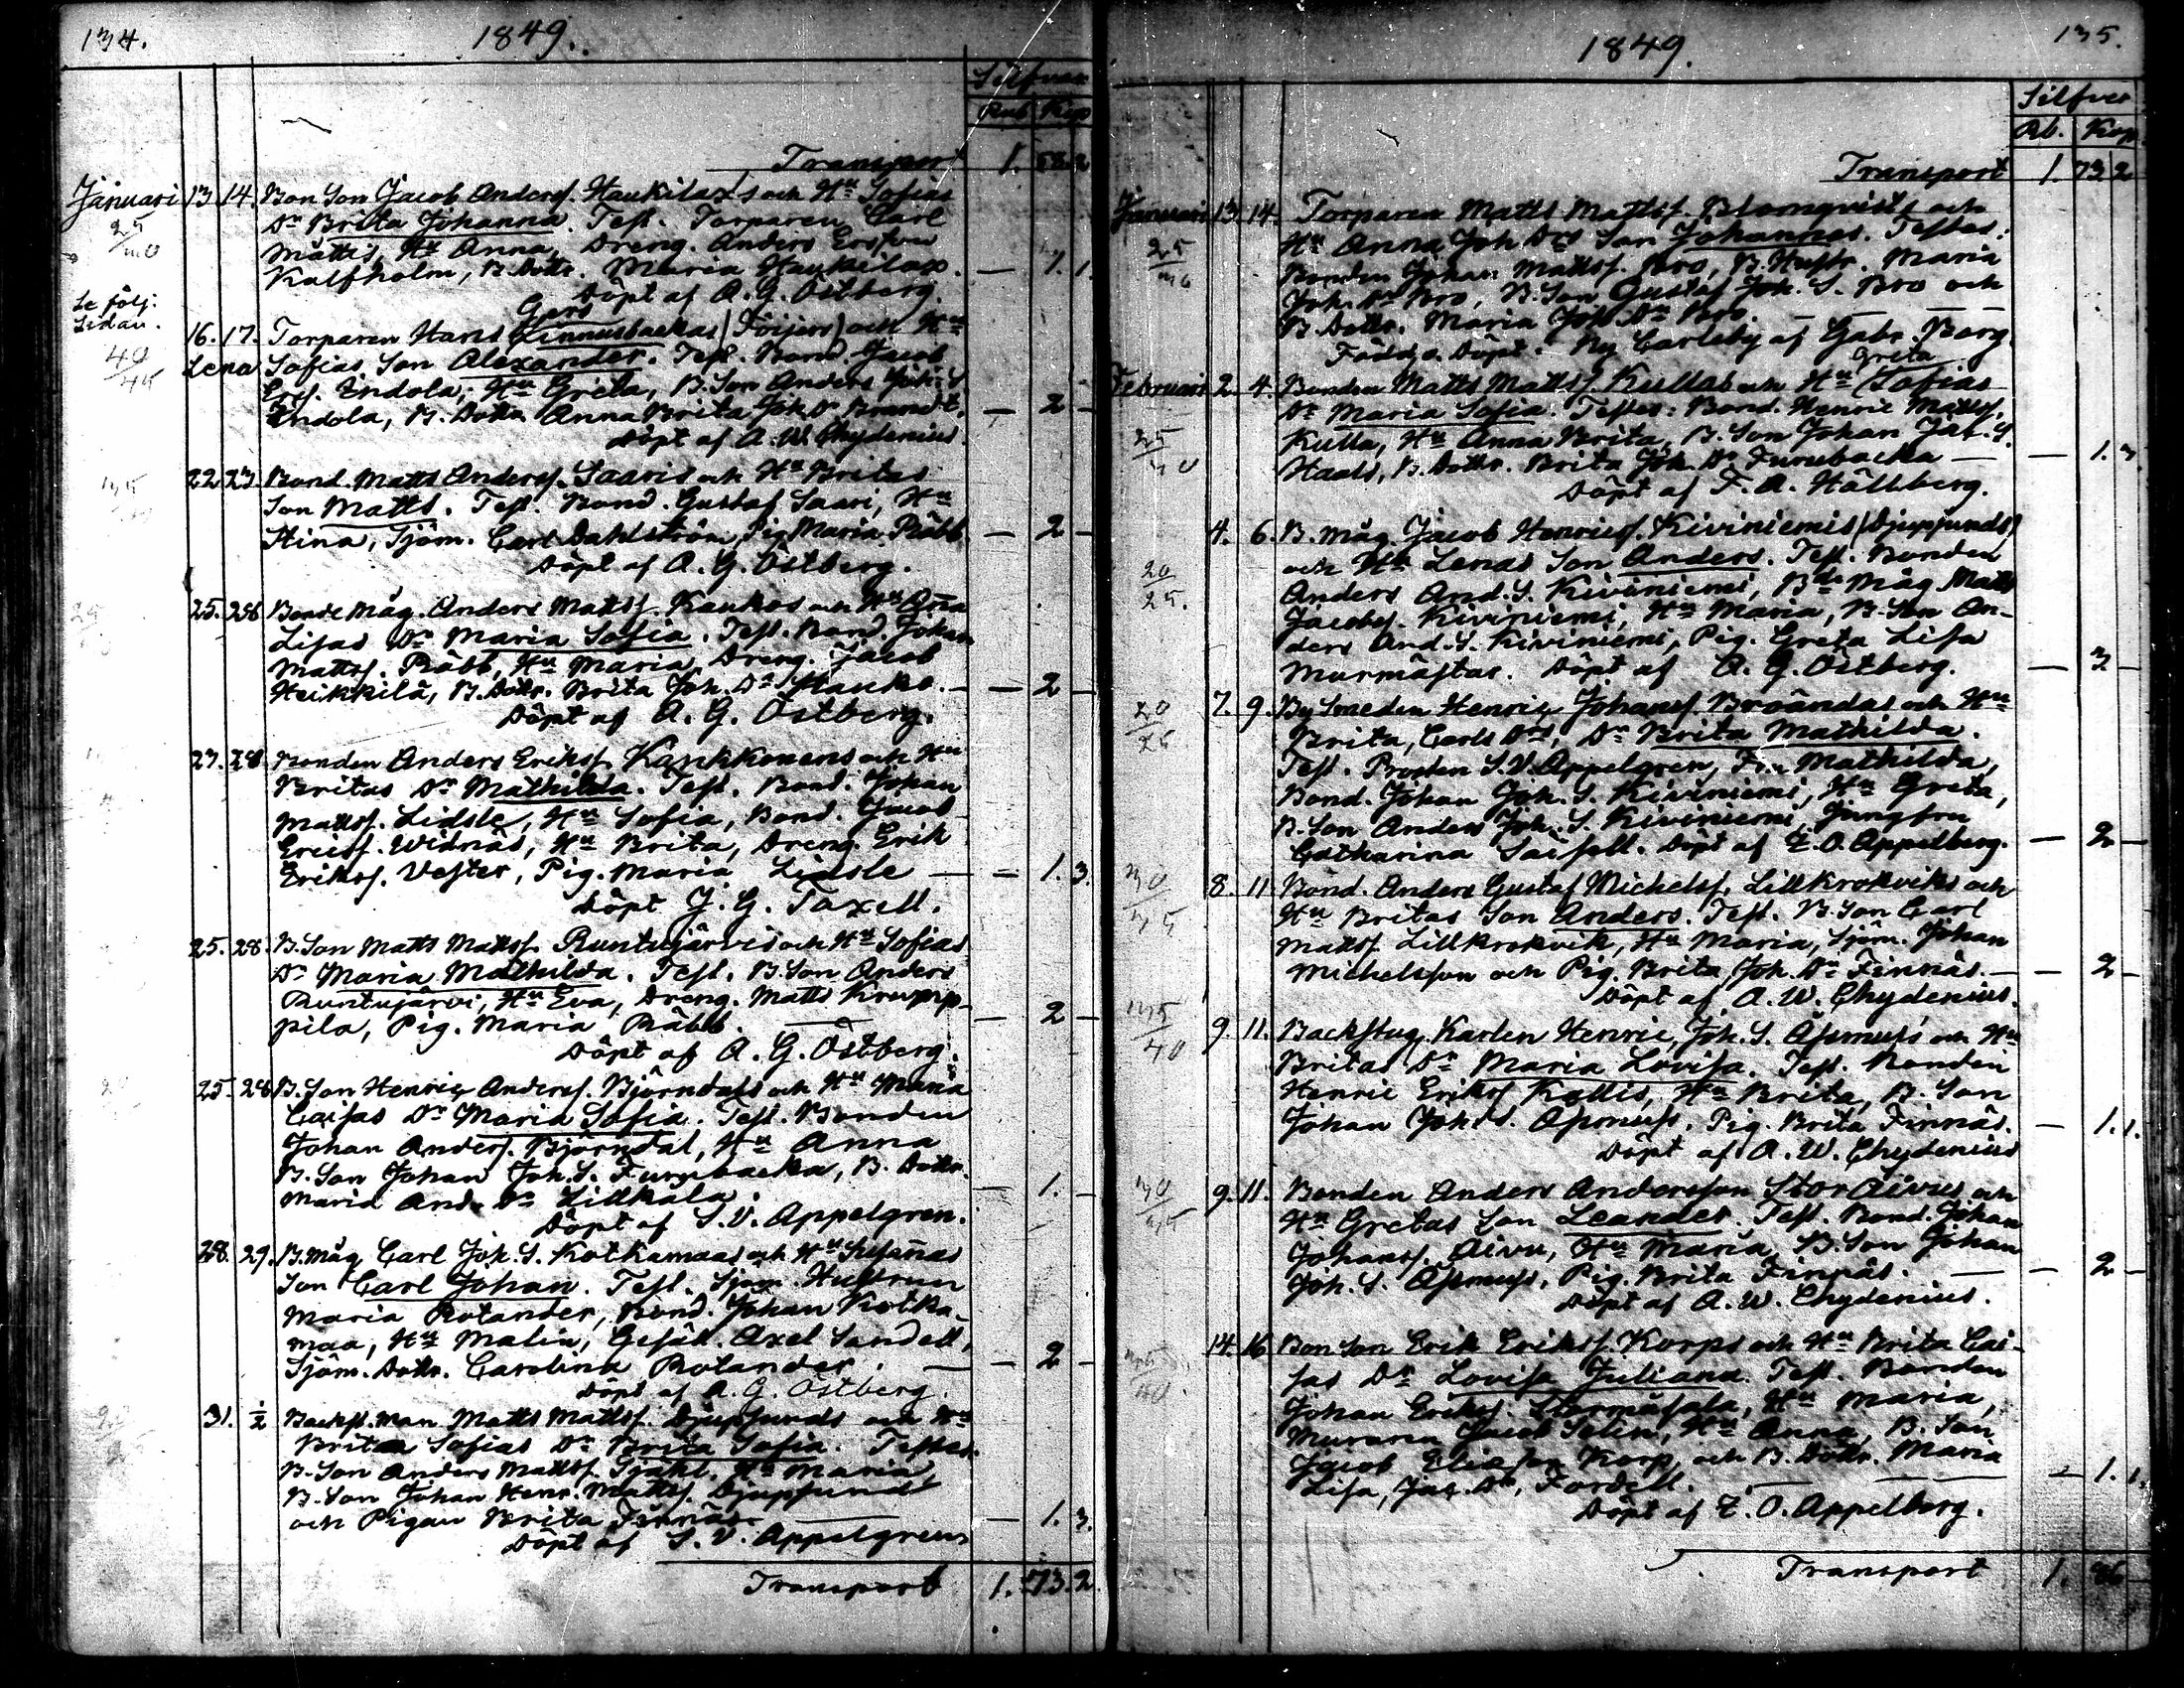 134.
1849.
Silfver
Rub Kop
Transport 1. 58. 2
Januari 13 14. Bon Son Jacob Anderss. Haukilax's och Hu Sofias
25
Dr Brita Johanna. Test. Torparen Carl
Matts, Hu Anna, Dreng. Anders Ersson
Kalfholm, B. Dottr. Maria Haukilax. — 1. 1.
Döpt af A. G. Östberg.
Se följ:
Sidan.
Gers
16. 17. Torparen Hans Linnusbackas och Hu
40
45
Lena Sofias Son Alexander. Test. Bond. Jacob
Ers. Indola, Hu Greta, B. Son Anders Joh. S.
Indola, B. Dottr Anna Brita Joh. Dr Brandt. — 2 —
Döpt af A. W. Chydenius
22 23. Bond. Matts Anderss. Saaris och Hu Britas
Son Matts. Test. Bond. Gustaf Saari, Hu
Stina, Sjöm. Carl Dahlström, Pig. Maria Räbb. — 2 —
Döpt af A. G. Östberg.
25. 28 Bonde Måg. Anders Mattss. Kaukos och Hu Aña
Lisas Dr Maria Sofia. Test. Bond. Johan
Mattss. Räbb, Hu Maria, Dreng. Jacob
Heikkilä, B. Dottr. Brita Joh. Dr Hauko. — — 2 —
Döpt af A. G. Östberg.
27. 28. Bonden Anders Erikss. Kankkonens och Hu
Britas Dr Mathilda. Test. Bond. Johan
Mattss. Lidsle, Hu Sofia, Bond. Jacob
Ericss. Widnäs, Hu Brita, Dreng. Erik
Erikss. Vester, Pig. Maria Lidsle — — 1. 3.
Döpt J. G. Taxell.
25. 28. B. Son Matts Mattss. Runtujärvis och Hu Sofias
Dr Maria Mathilda. Test. B. Son Anders
Runtujärvi, Hu Eva, Dreng. Matts Krupp-
pila, Pig. Maria Räbb. — — 2 —
Döpt af A. G. Östberg.
25. 28 B. Son Henric Anderss. Björndals och Hu Maria
Caisas Dr Maria Sofia. Test. Bonden
Johan Anders. Björndal, Hu Anna
B. Son Johan Joh. S. Furubacka, B. Dottr.
Maria And. Dr Lillkala. — 1. —
Döpt af S. V. Appelgren.
28. 29. B. Måg Carl Joh. S. Kotkamaas och Hu Susañas
Son Carl Johan. Test. Sjöm. Hustrun
Maria Rotander, Bond. Johan Kotka-
maa, Hu Malin, Gesäll. Axel Sandell,
Sjöm. Dottr. Carolina Rotander. — — 2 —
Döpt af A. G. Östberg.
31. 1/2 Backst. Man Matts Mattss. Djupsunds och Hu
Britas Sofias Dr Brita Sofia. Testes.
B. Son Anders Mattss. Hu Maria,
B. Son Johan Henr. Mattss. Djupsund
och Pigan Brita Finnäs. — — 1. 3.
Döpt af S. V. Appelgren
Transport 1. 73. 2
135.
1849.
Silfver
Rb. Kop
Transport 1. 73 2
Januari 13. 14. Torparen Matts Mattss. Blomqvists och
25
Hu Anna Joh Drs Son Johannes. Testes:
Bonden Johan Mattss. Bro, B. Hustr. Maria
Joh. Dr Bro, B. Son Gustaf Joh. S. Bro och
B. Dottr. Maria Joh Dr Bro. — — —
Född o. Döpt. Ny Carleby af Gabr. Borg
Greta
Februari 2. 4. Bonden Matts Mattss. Kullas och Hu (Sofias
25
Dr Maria Sofia. Testes: Bond. Henric Mattss.
Kulla, Hu Anna Brita, B. Son Johan Jac. S.
Haals, B. Dottr. Brita Joh. Dr Furubacka — — 1. 3.
Döpt af F. A. Hällberg.
4. 6. B. Måg. Jacob Henricss. Kiviniemis (Djupsunds)
20
25.
och Hu Lenas Son Anders. Test. Bonden
Anders And. S. Kiviniemi, Bde Måg Matts
Jacobss. Kiviniemi, Hu Maria, B. Son An-
ders And. S. Kiviniemi, Pig. Greta Lisa
Murmästar. Döpt af A. G. Östberg. — 3 —
7. 9. By Smeden Henric Johanss. Broändas och Hu
20
25
Brita, Carls Drs, Dr Brita Mathilda.
Test. Prosten S. V. Appelgren, Fru Mathilda,
Bond. Johan Joh. S. Kiviniemi, Hu Greta,
B. Son Anders Joh. S. Kiviniemi, Jungfru
Catharina. Döpt af E. O. Appelberg. — 2 —
8. 11 Bond. Anders Gustaf Michelss. Lillkrokviks och
30
35
Hu Britas Son Anders. Test. B. Son Carl
Mattss. Lillkrokvik, Hu Maria, Sjöm. Johan
Michelsson och Pig. Brita Joh. Dr Finnäs. — — 2 —
Döpt af A. W. Chydenius.
9. 11. Backstug. Karlen Henric Joh. S. Åsmuss' och Hu
35
40
Britas Dr Maria Lovisa. Test. Bonden
Henric Erikss. Kallis, Hu Brita, B. Son
Johan Joh. S. Åsmuss, Pig. Brita Finnäs. — 1. 1.
Döpt af A. W. Chydenius
9. 11. Bonden Anders Andersson Stor Aivus och
30
35
Hu Gretas Son Leander. Test. Bond. Johan
Johanss. Aivu, Hu Maria, B. Son Johan
Joh. S. Åsmuss, Pig. Brita Finnäs. — — 2 —
Döpt af A. W. Chydenius.
14. 16 Bon Son Erik Erikss. Korps och Hu Brita Cai-
35
40.
sas Dr Lovisa Juliana. Test. Bonden
Johan Erikss. Stormåsala, Hu Maria,
Muraren Jacob Solin, Hu Anna, B. Son
Jacob Eliasson Korp, och B. Dottr. Maria
Lisa, Jac. Dr, Fordell. — — — 1. 1.
Döpt af E. O. Appelberg.
Transport 1. 86 —